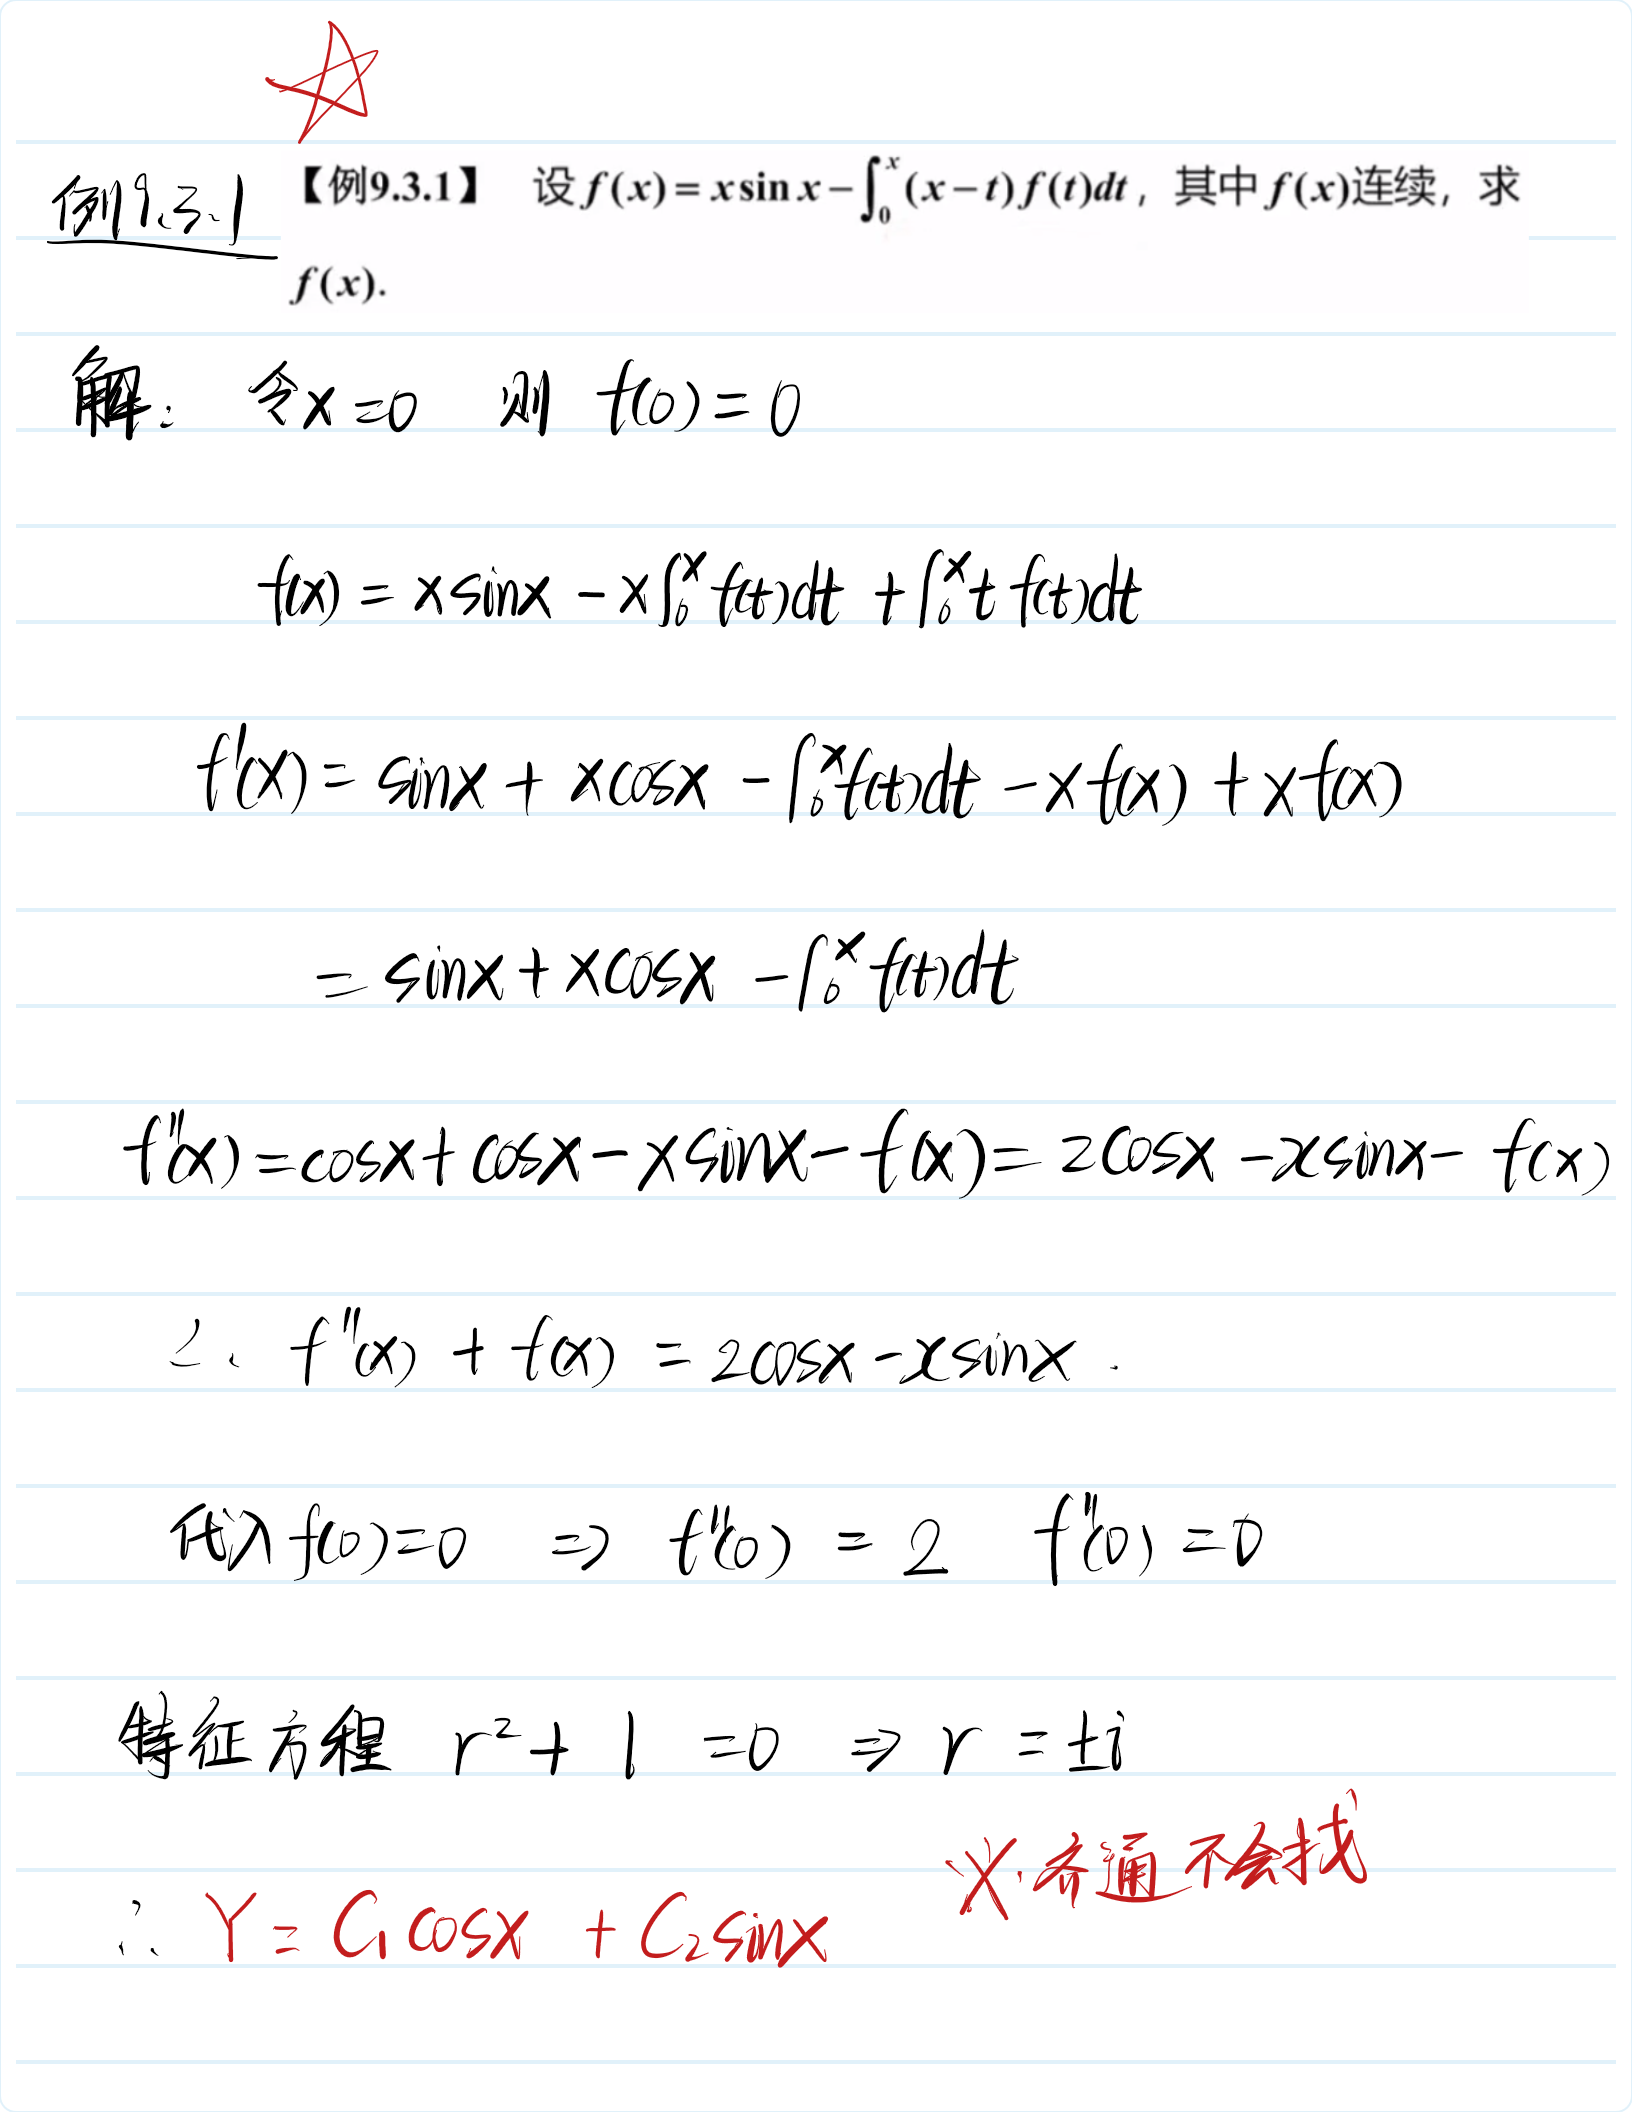 例9.3.1
【例9.3.1】 设 f(x) = x sin x − ∫₀ˣ (x − t) f(t)dt, 其中 f(x)连续, 求
f(x).
解: 令x=0 则 f(0)=0
f(x) = xsinx - x∫₀ˣ f(t)dt + ∫₀ˣ t f(t)dt
f'(x) = sinx + xcosx - ∫₀ˣ f(t)dt - xf(x) + xf(x)
= sinx + xcosx - ∫₀ˣ f(t)dt
f"(x) = cosx + cosx - xsinx - f(x) = 2cosx - xsinx - f(x)
∴ f"(x) + f(x) = 2cosx - xsinx.
代入f(0)=0 ⇒ f"(0) = 2 f"(0) = 0
特征方程 r² + 1 = 0 ⇒ r = ±i
※.齐通不会找
∴ Y = C₁cosx + C₂sinx